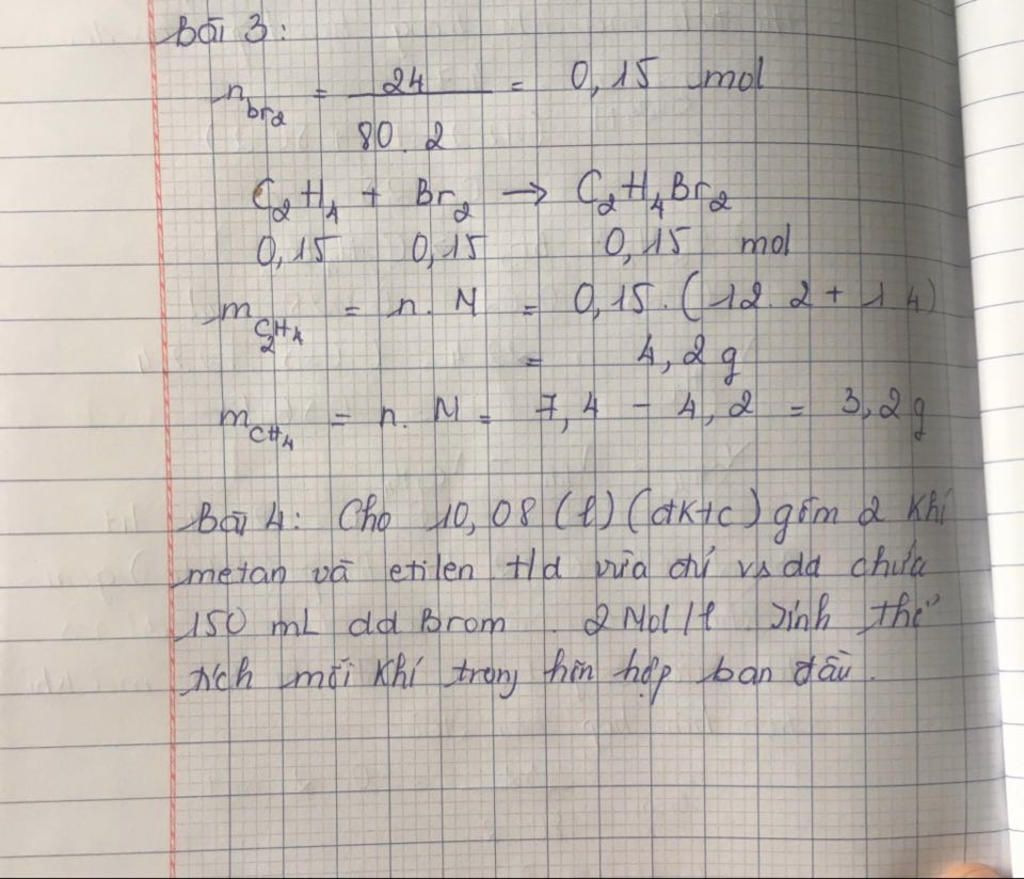 Bài 3:
n_br2 = 24 / 80.2 = 0,15 mol
C2H4 + Br2 → C2H4Br2
0,15 0,15 0,15 mol
m_C2H4 = n. M = 0,15.(12.2+1 4)
= 4,2 g
m_CH4 = n. M = 7,4 - 4,2 = 3,2 g
Bài 4: Cho 10,08 (l) (đktc) gồm 2 khí
metan và etilen t/d vừa đủ vs dd chứa
150 mL dd Brom . 2 Mol/l Tính thể
tích mỗi khí trong hỗn hợp ban đầu.